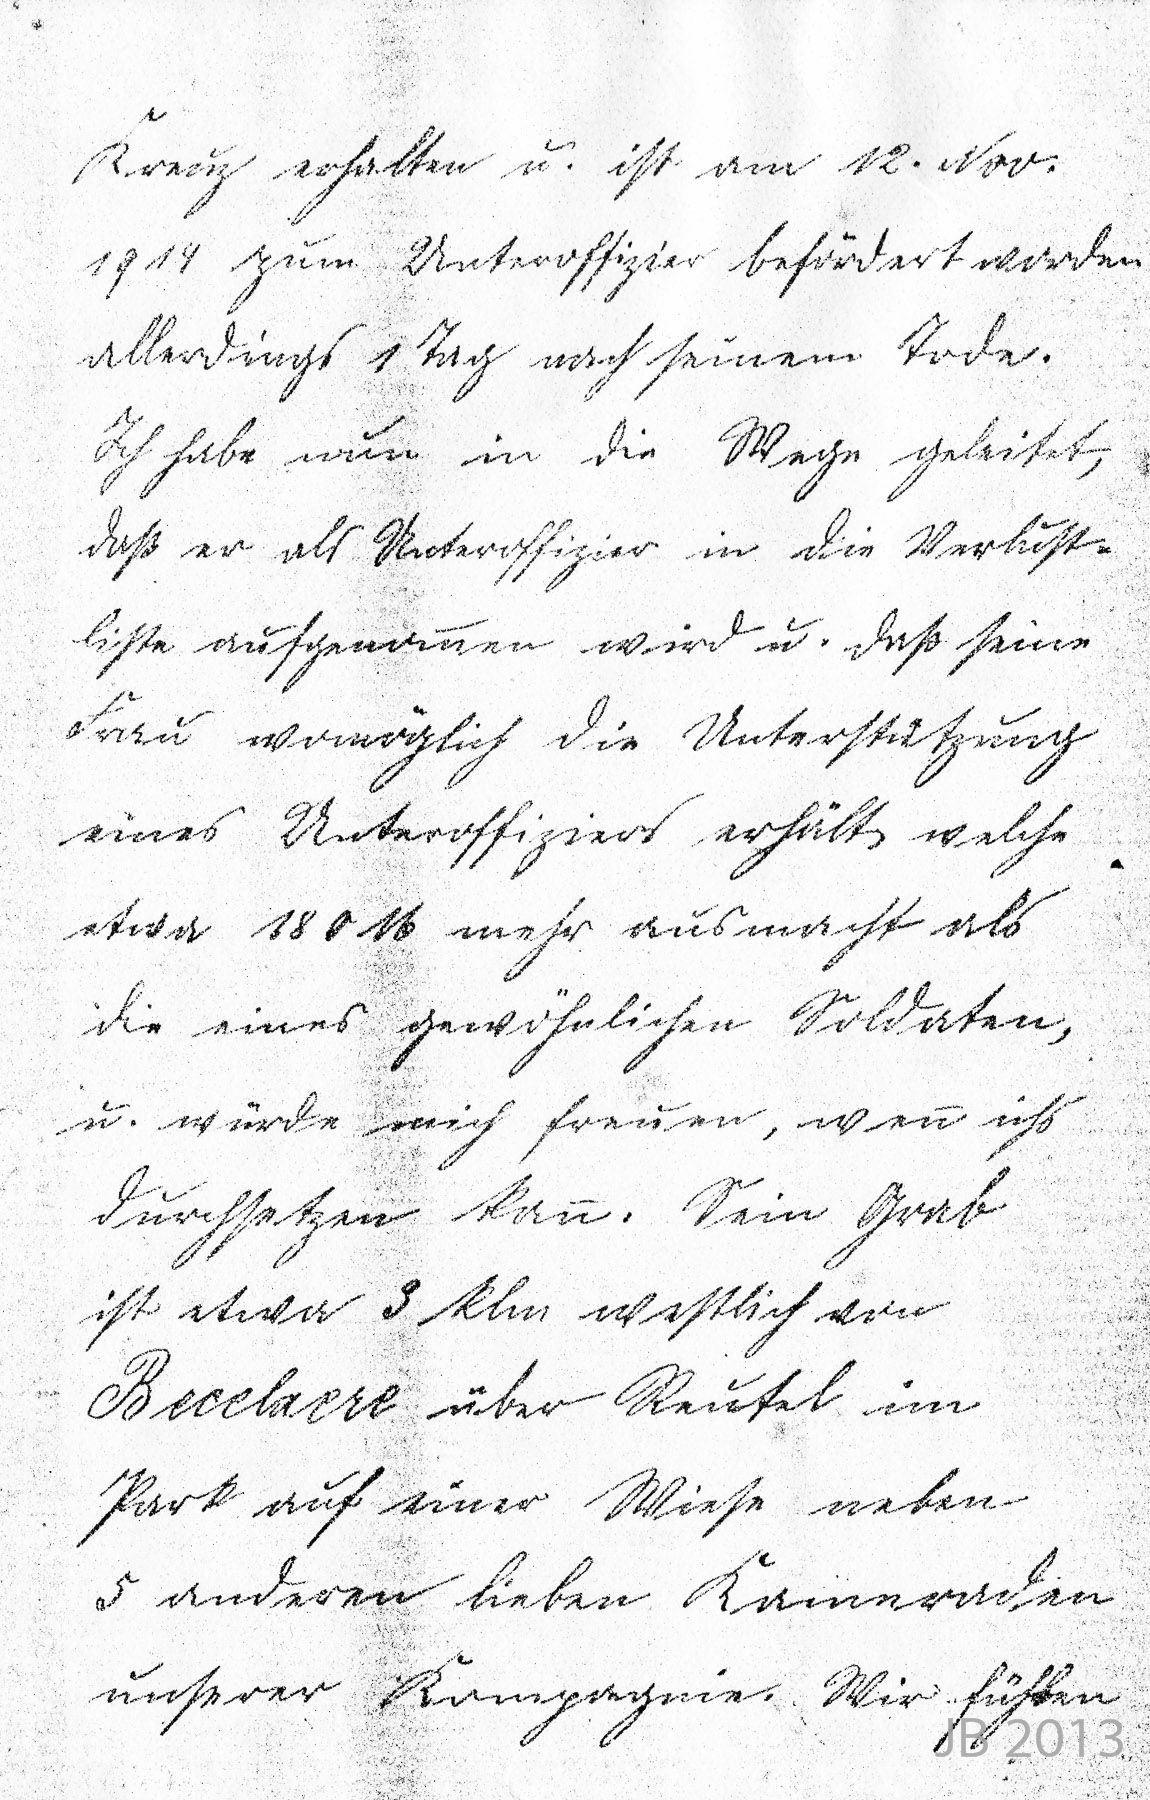 Kreuz erhalten u. ist am 12. Nov.
1914 zum Unteroffizier befördert worden
allerdings 1 Tag nach seinem Tode.
Ich habe nun in die Wege geleitet,
daß er als Unteroffizier in die Verlust-
liste aufgenom̅en wird u. daß seine
Frau womöglich die Unterstützung
eines Unteroffiziers erhält, welche
etwa 180 M mehr ausmacht als
die eines gewöhnlichen Soldaten,
u. würde mich freuen, wen̅ ichs
durchsetzen kan̅. Sein Grab
ist etwa 3 klm westlich von
Becelaere über Reutel im
Park auf einer Wiese neben
5 anderen lieben Kameraden
unserer Kompagnie. Wir fühlen
JB 2013